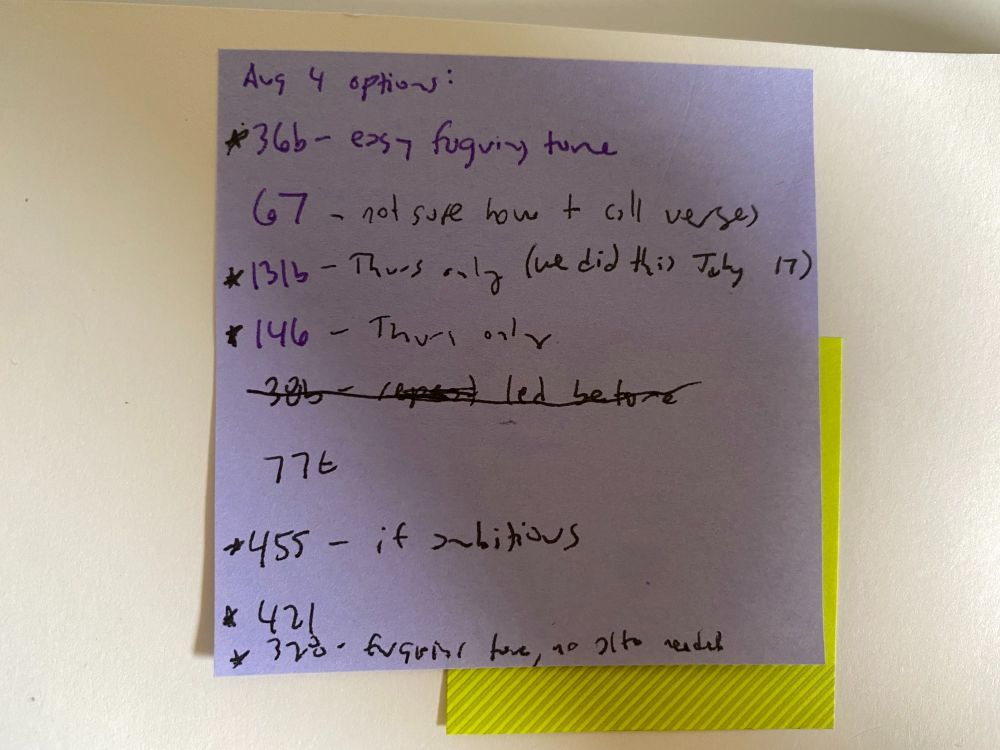 Aug 4 options:
* 36b - easy fuguing tune
67 - not sure how to call verses
* 131b - Thurs only (we did this July 17)
* 146 - Thurs only
38b - led before
77t
* 455 - if ambitious
* 421
* 328 - fuguing tune, no alto needed